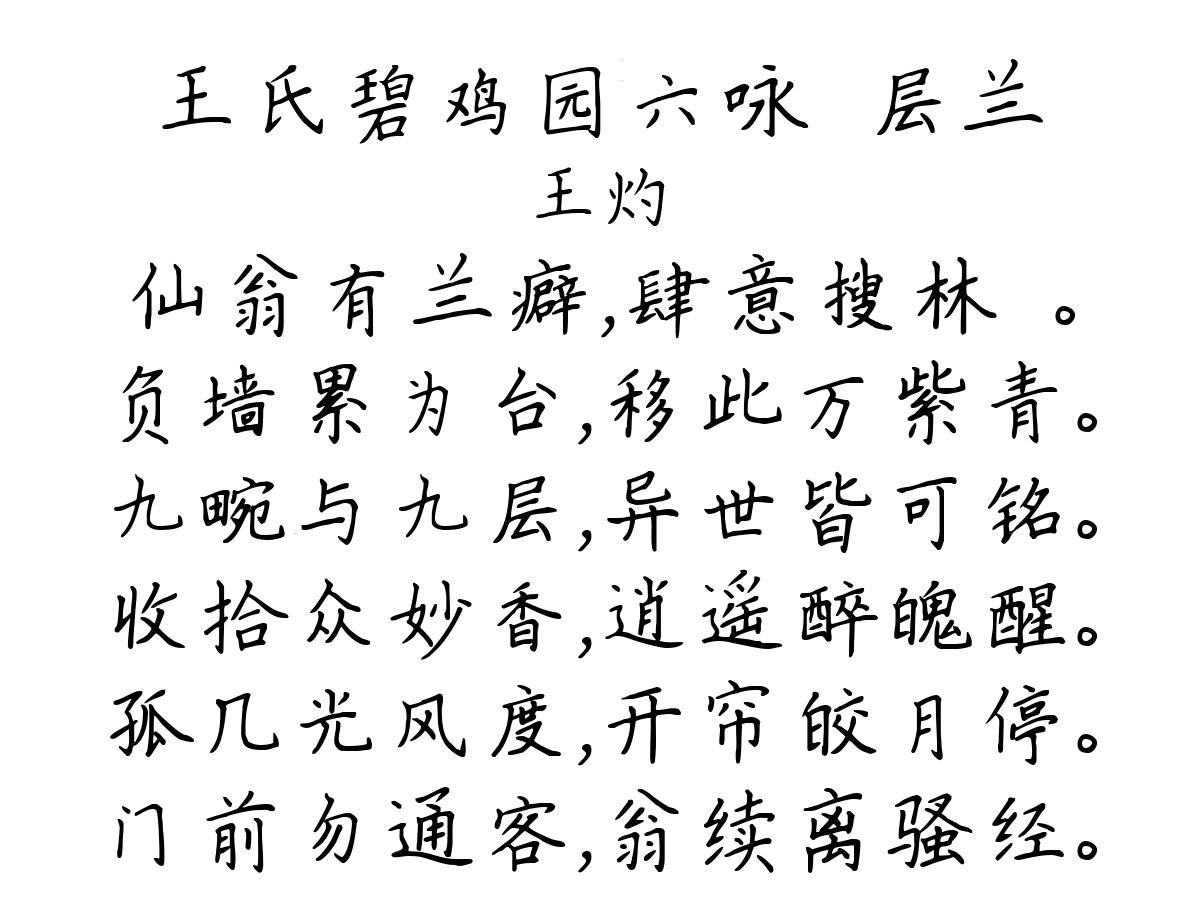 王氏碧鸡园六咏 层兰
王灼
仙翁有兰癖,肆意搜林 。
负墙累为台,移此万紫青。
九畹与九层,异世皆可铭。
收拾众妙香,逍遥醉魄醒。
孤几光风度,开帘皎月停。
门前勿通客,翁续离骚经。